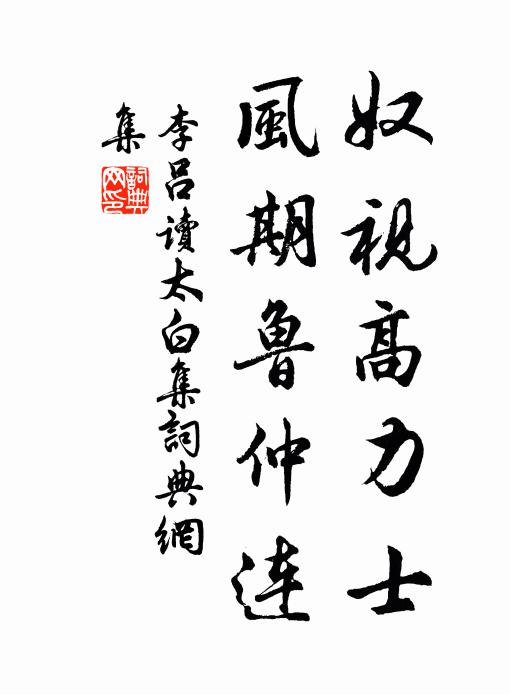 奴視高力士
風期魯仲連
李呂讀太白集詞典網
集
詞典
网印